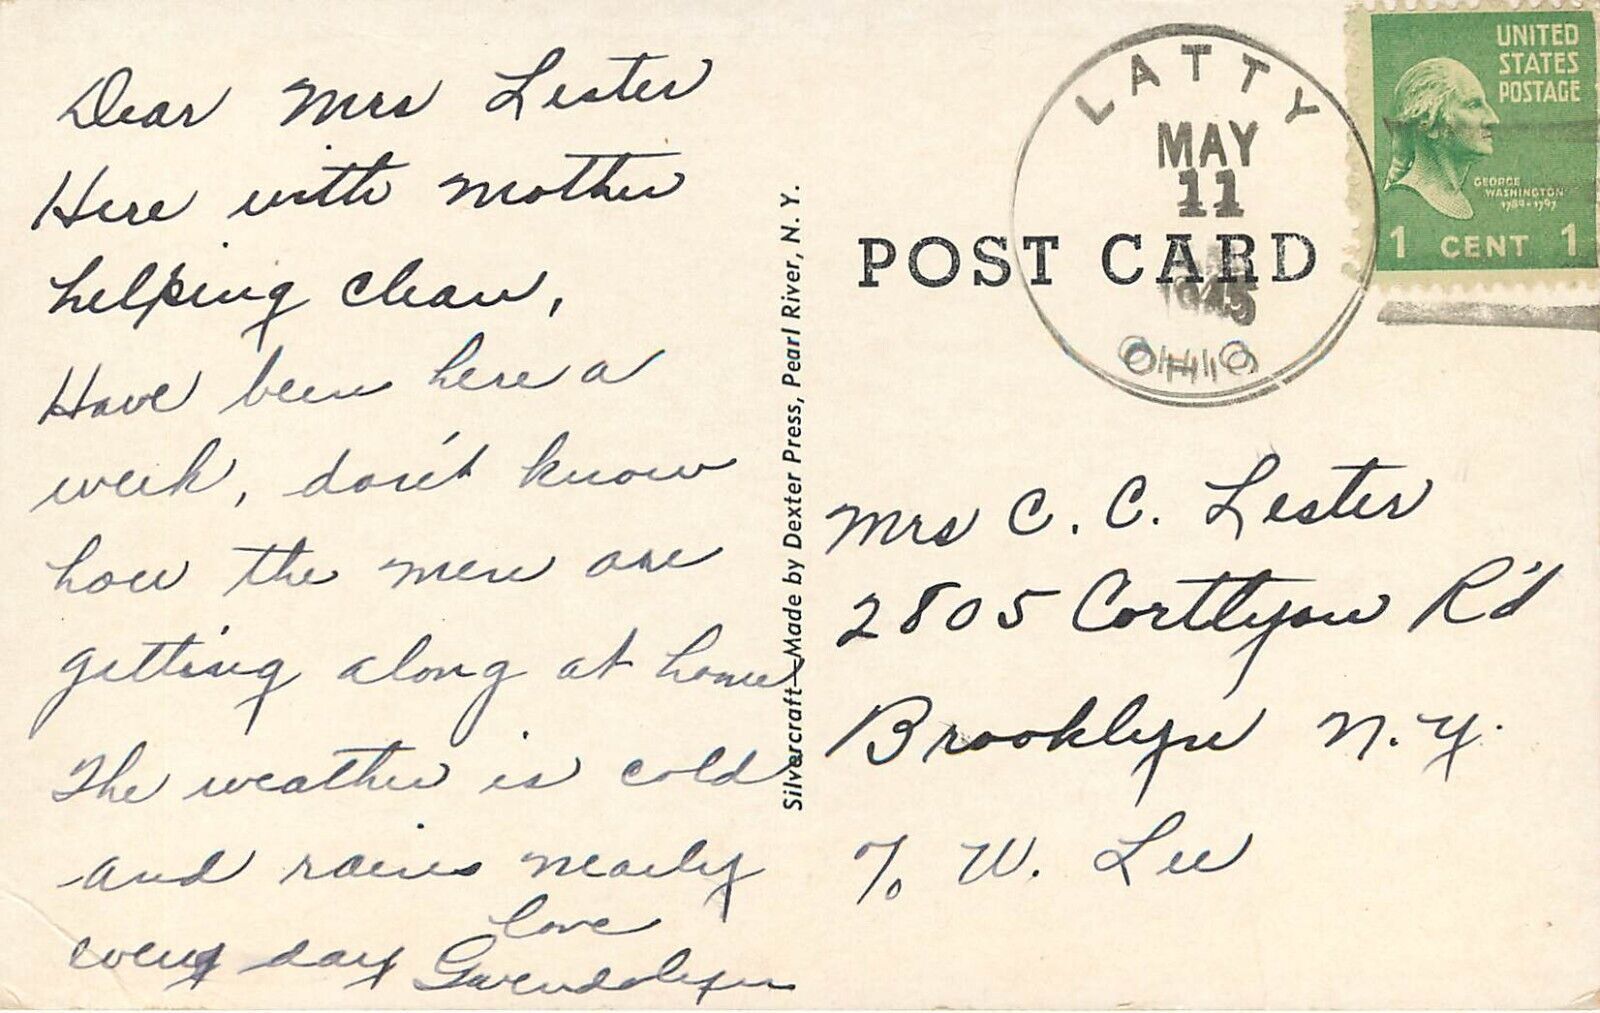 Dear Mrs Lester
Here with Mother
helping clean,
Have been here a
week, don't know
how the men are
getting along at home
The weather is cold
and rains nearly
every day
Love
Gwendolyn
Silvercraft—Made by Dexter Press, Pearl River, N. Y.
POST CARD
LATTY
MAY
11
1945
OHIO
UNITED
STATES
POSTAGE
GEORGE
WASHINGTON
1789-1797
1 CENT 1
Mrs C. C. Lester
2805 Cortlyou R'd
Brooklyn N.Y.
℅ W. Lee